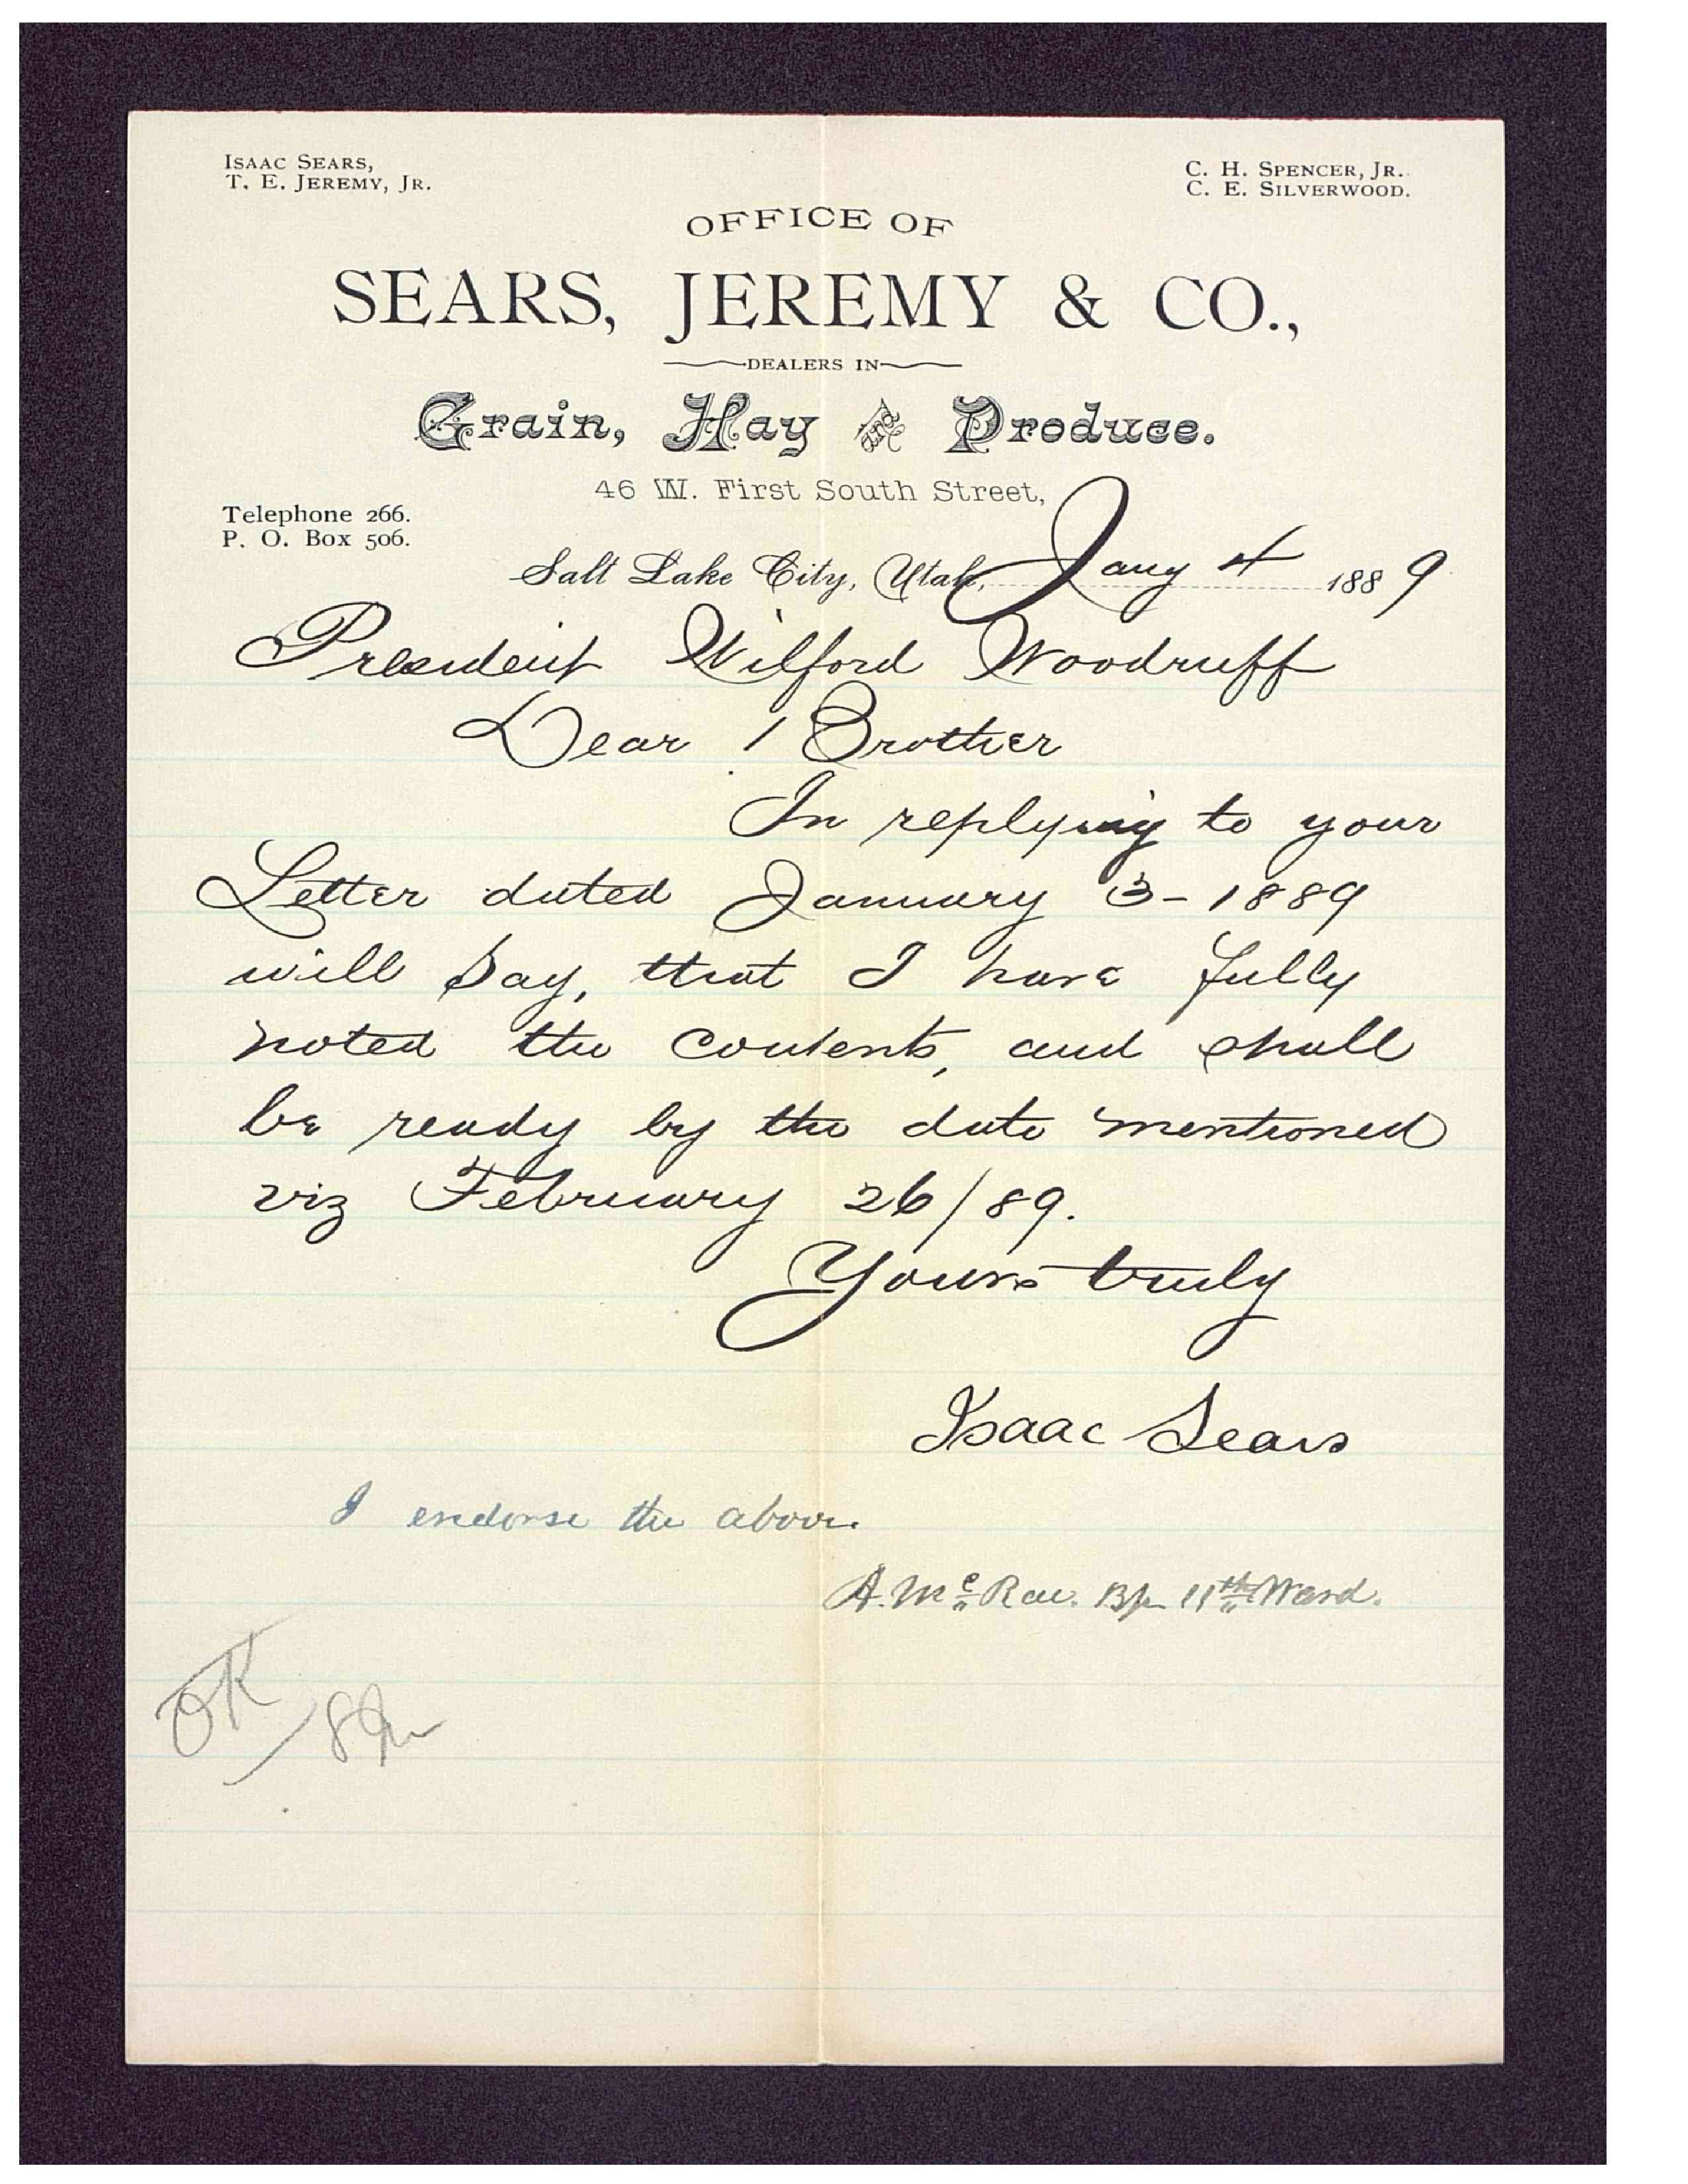 ISAAC SEARS,
T. E. JEREMY, JR.
C. H. SPENCER, JR.
C. E. SILVERWOOD.
OFFICE OF
SEARS, JEREMY & CO.,
DEALERS IN
Grain, Hay and Produce.
46 W. First South Street,
Telephone 266.
P. O. Box 506.
Salt Lake City, Utah, Jany 4 1889
President Wilford Woodruff
Dear Brother
In replying to your
Letter dated January 3-1889
will say, that I have fully
noted the contents, and shall
be ready by the date mentioned
viz February 26/89.
Yours truly
Isaac Sears
I endorse the above.
A. Mc Rae. Bp 11th Ward.
OK